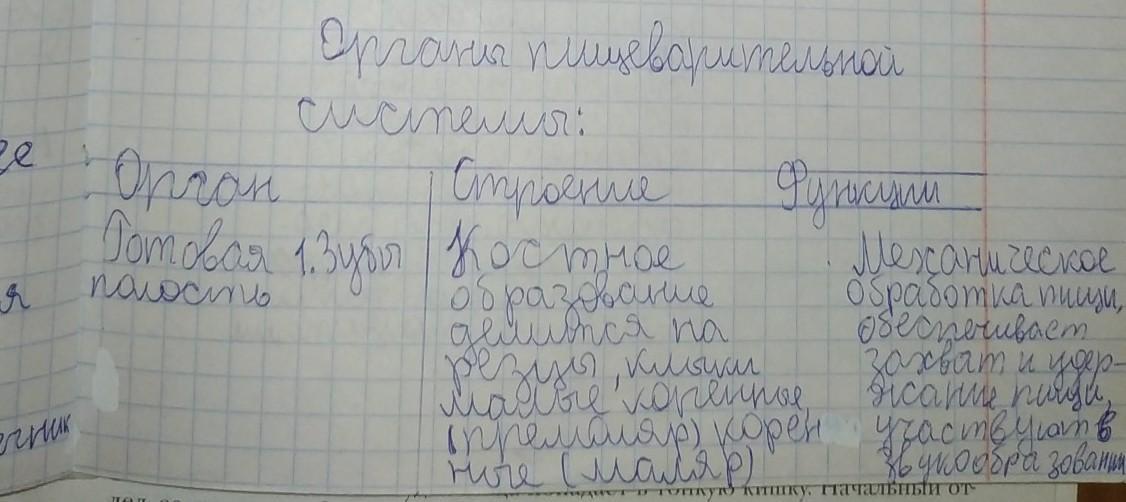 Органы пищеварительной
системы:
Орган Строение Функции
Ротовая 1. Зубы Костное Механическое
полость образование обработка пищи,
делится на обеспечивает
резцы, клыки захват и удер-
малые коренные, жание пищи,
(премоляр) корен участвуют в
ные (маляр) звукообразовании
ее
я
ечник
в тонкую кишку. Начальный от-